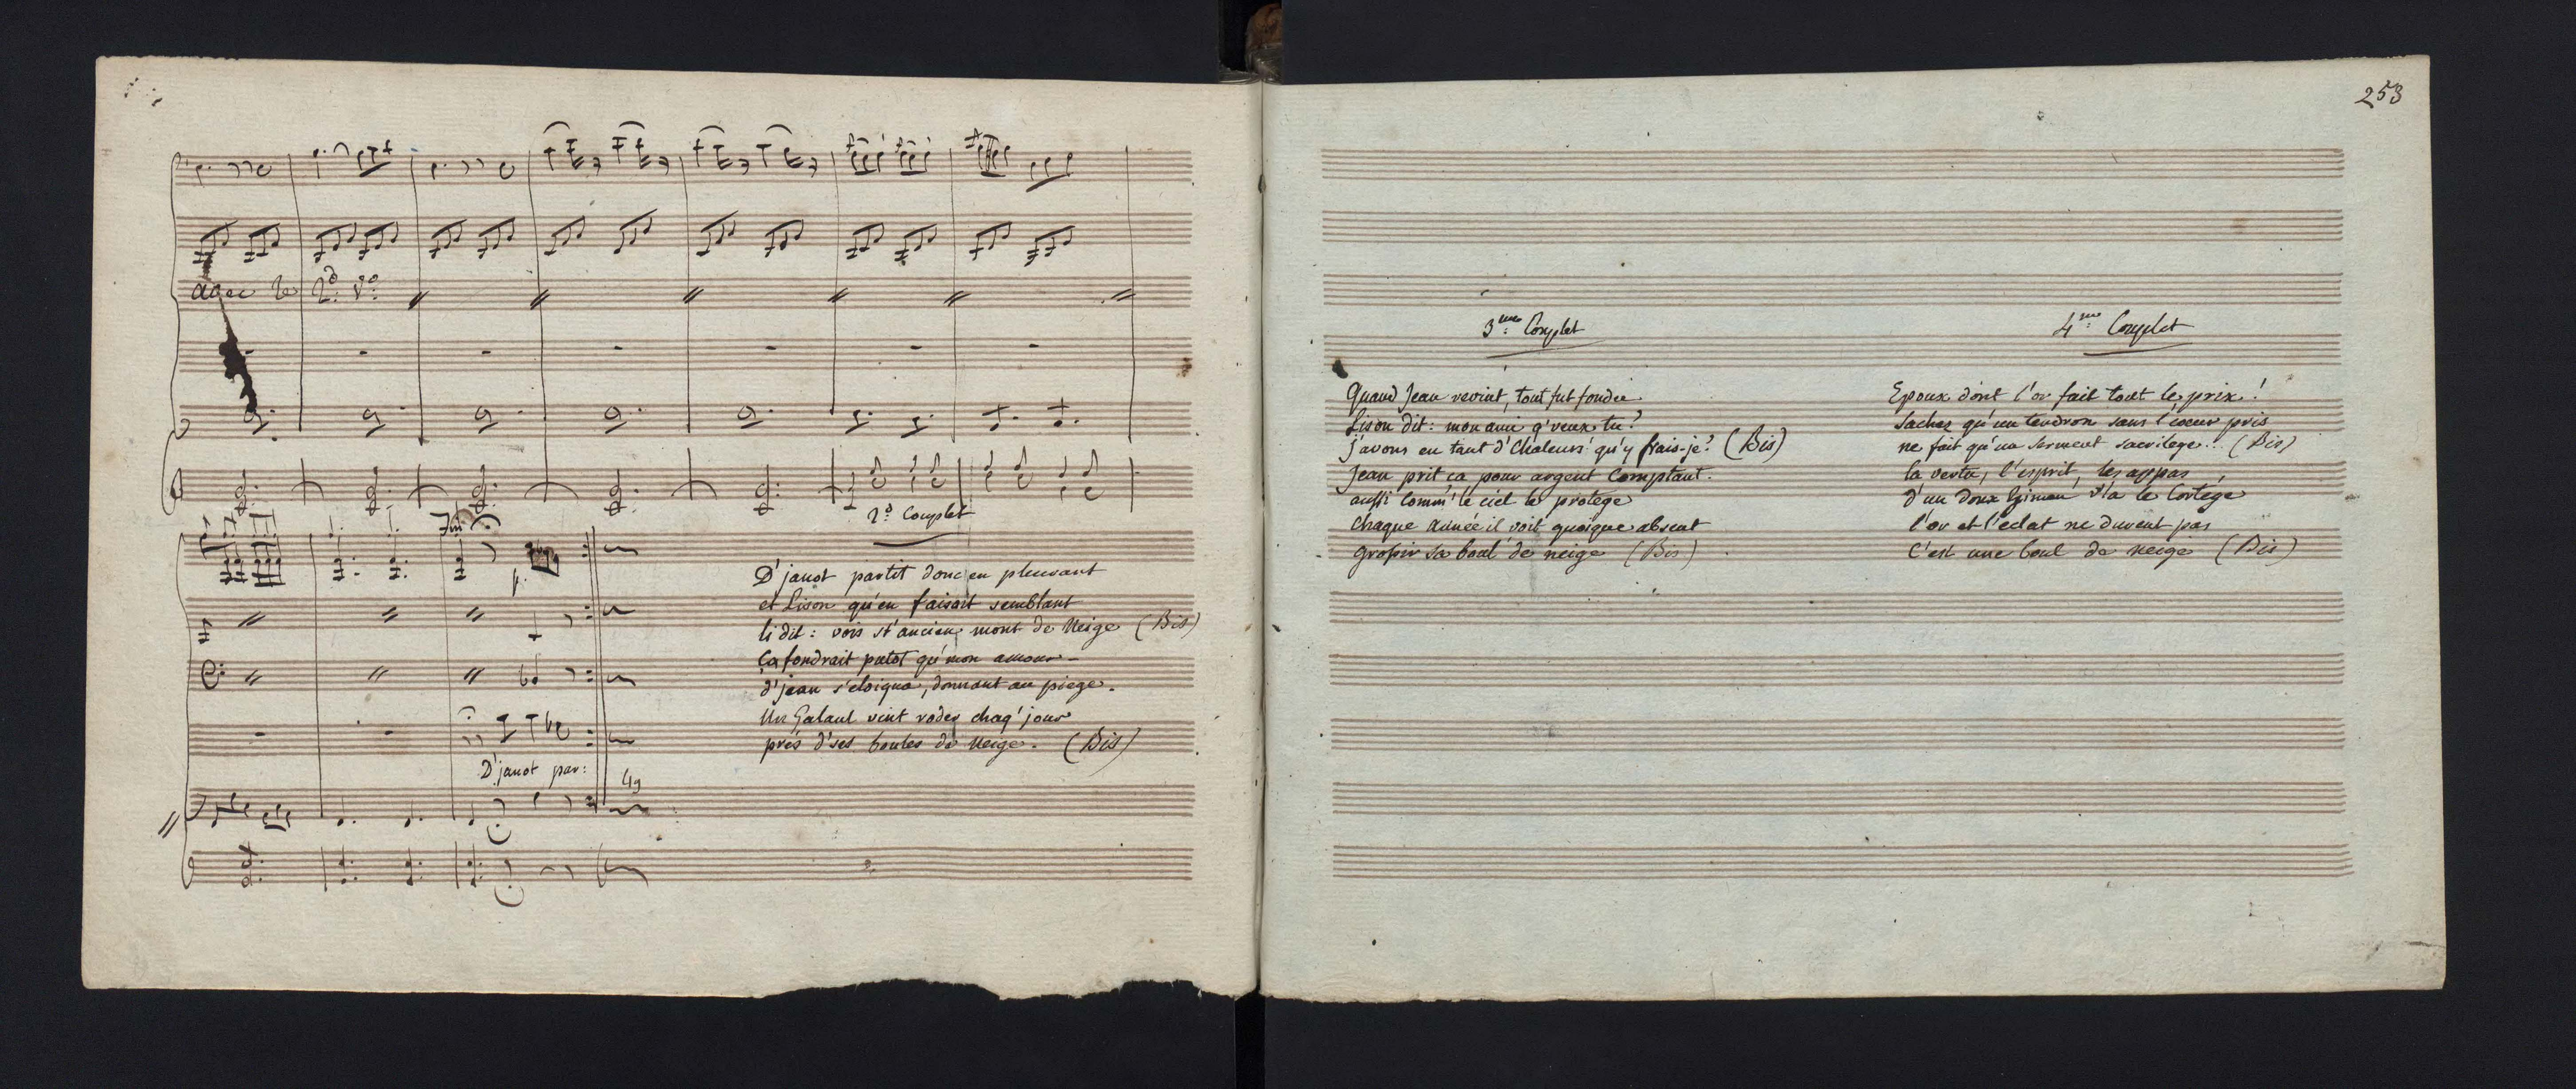 avec le 2d. Vo.
Fin
p.
D'janot par:
2d. Couplet
D'janot partit donc en pleurant
et Lison qu'en faisait semblant
li dit: vois st'ancien mont de Neige (Bis)
Ça fondrait putot qu'mon amour
d'jean s'eloigna, donnant au piege.
Un Galant vint roder chaq' jour
prés d'ses boules de Neige. (Bis)
253
3me. Couplet
Quand Jean revint, tout fut fondu
Lison dit: mon ami q'veux tu?
j'avons eu tant d'Chaleurs! qu'y frais-je? (Bis)
Jean prit ça pour argent Comptant.
aussi Comm' le ciel le protege
Chaque année il voit quoique absent
grossir sa boul' de neige (Bis)
4me. Couplet
Epoux dont l'or fait tout le prix!
Sachez qu'un tendron sans l'coeur pris
ne fait qu'un serment sacrilege!. (Bis)
la vertu, l'esprit, les appas
d'un doux v'la le Cortège
l'or et l'eclat ne durent pas
C'est une boul' de neige (Bis)